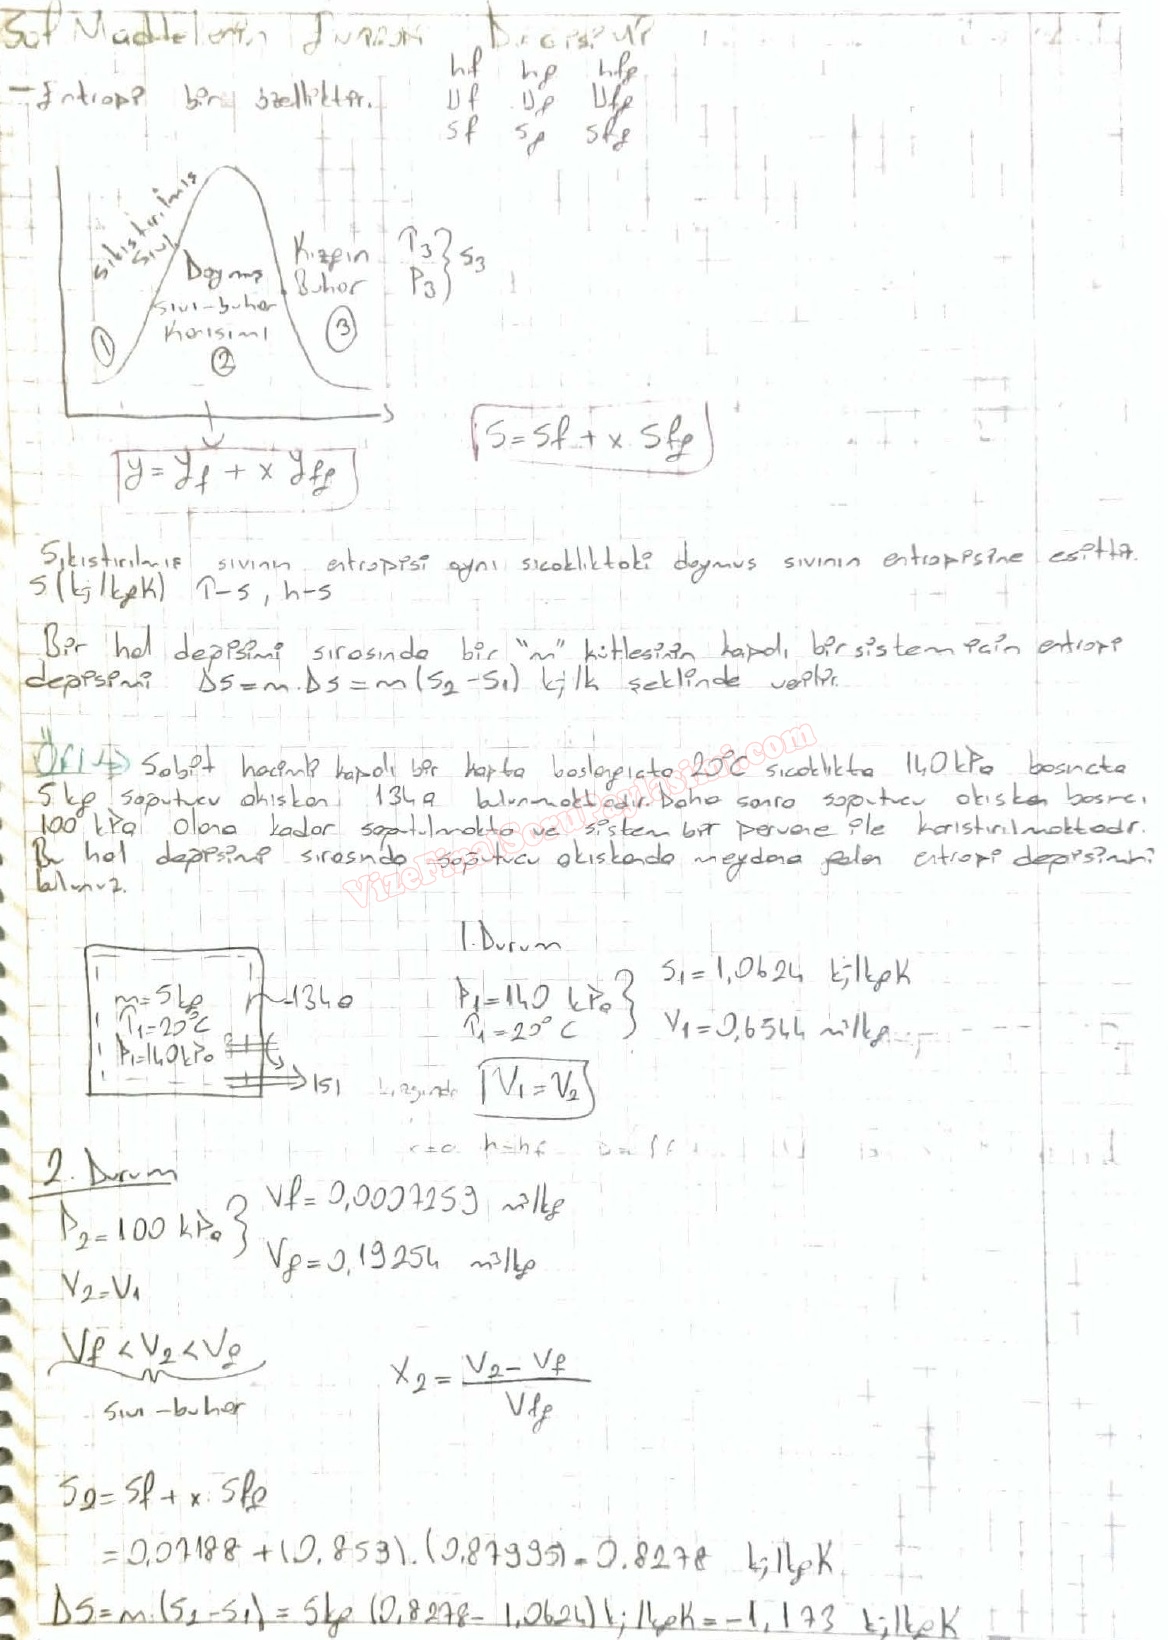 Saf Maddelerin Durum Değişimi
- Entropi bir özelliktir.
hf hg hfg
Uf Ug Ufg
Sf Sg Sfg
Sıkıştırılmış sıvı
Doymuş sıvı-buhar Karışımı
Kızgın Buhar
T3 P3 } S3
① ② ③
y = yf + x yfg
S = Sf + x Sfg
Sıkıştırılmış sıvının entropisi aynı sıcaklıktaki doymuş sıvının entropisine eşittir.
S (kj/kgK) T-s, h-s
Bir hal değişimi sırasında bir "m" kütlesinin kapalı bir sistem için entropi
değişimi ΔS = m.Δs = m(S2 - S1) kj/k şeklinde verilir.
ÖR14→ Sabit hacimli kapalı bir kapta başlangıçta 20°C sıcaklıkta 140 kPa basınçta
5 kg soğutucu akışkan 134a bulunmaktadır. Daha sonra soğutucu akışkan basıncı
100 kPa olana kadar soğutulmakta ve sistem bir pervane ile karıştırılmaktadır.
Bu hal değişimi sırasında soğutucu akışkanda meydana gelen entropi değişimini
bulunuz.
VizeFinalSoruPaylasimi.com
m=5kg
T1=20°C
P1=140kPa
134a
ısı
1. Durum
P1=140 kPa
T1=20°C
S1=1,0624 kj/kgK
V1=0,6544 m³/kg
V1=V2
x=0 h=hf
2. Durum
P2=100 kPa
V2=V1
Vf=0,0007259 m³/kg
Vg=0,19254 m³/kg
Vf < V2 < Vg
sıvı-buhar
X2 = V2 - Vf / Vfg
S2 = Sf + x. Sfg
= 0,07188 + (0,853).(0,87995) = 0.8278 kj/kgK
ΔS = m.(S2-S1) = 5kg (0,8278 - 1,0624) kj/kgK = -1,173 kj/kgK